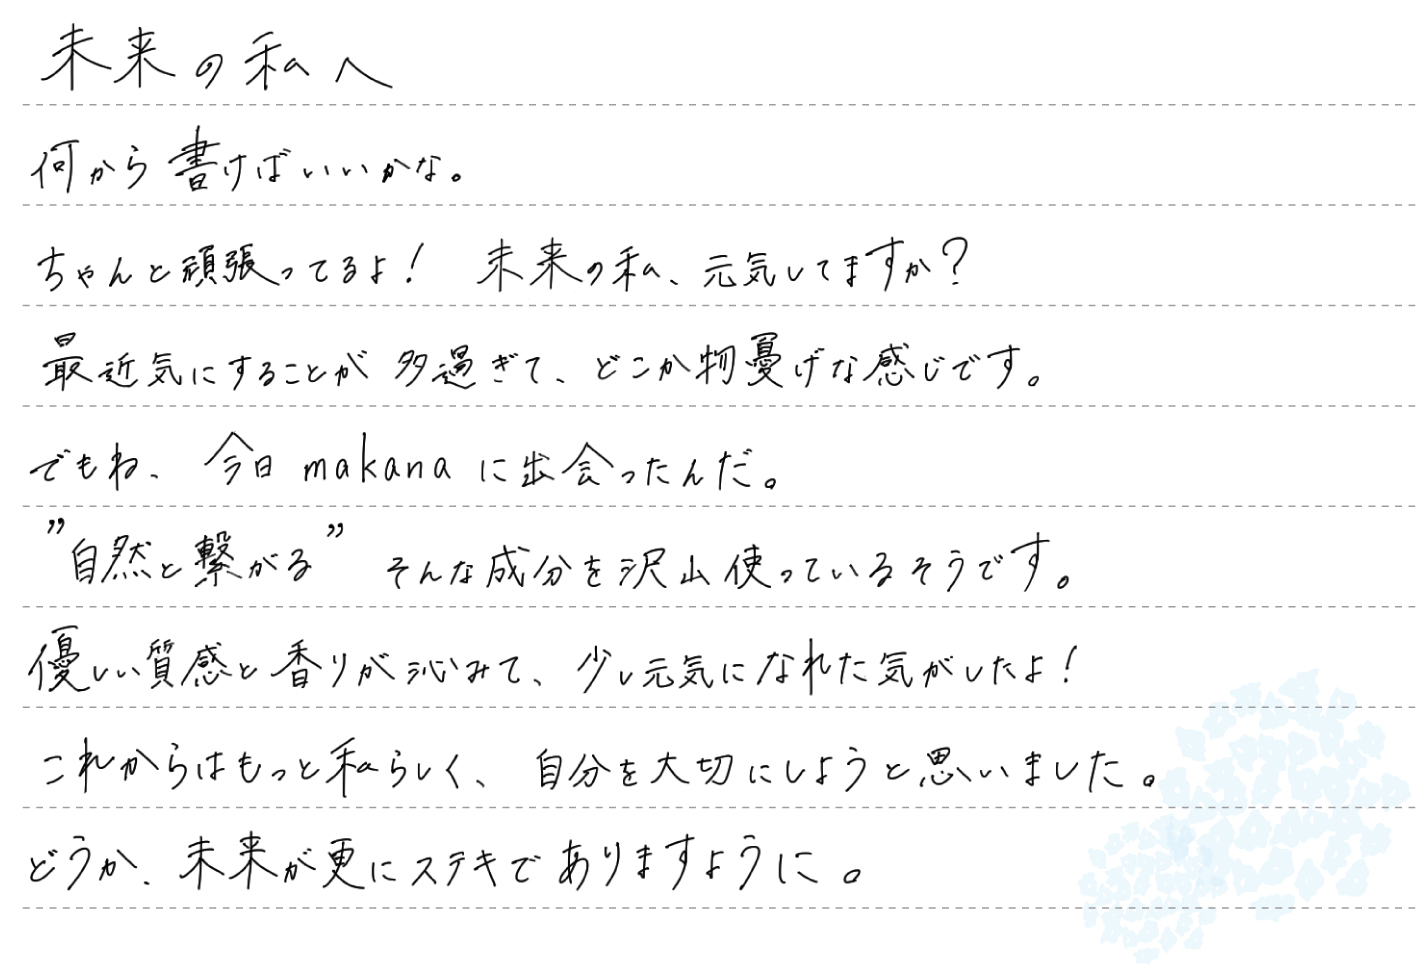 未来の私へ
何から書けばいいかな。
ちゃんと頑張ってるよ！ 未来の私、元気してますか？
最近気にすることが多過ぎて、どこか物憂げな感じです。
でもね、今日makanaに出会ったんだ。
”自然と繋がる” そんな成分を沢山使っているそうです。
優しい質感と香りが沁みて、少し元気になれた気がしたよ！
これからはもっと私らしく、自分を大切にしようと思いました。
どうか、未来が更にステキでありますように。